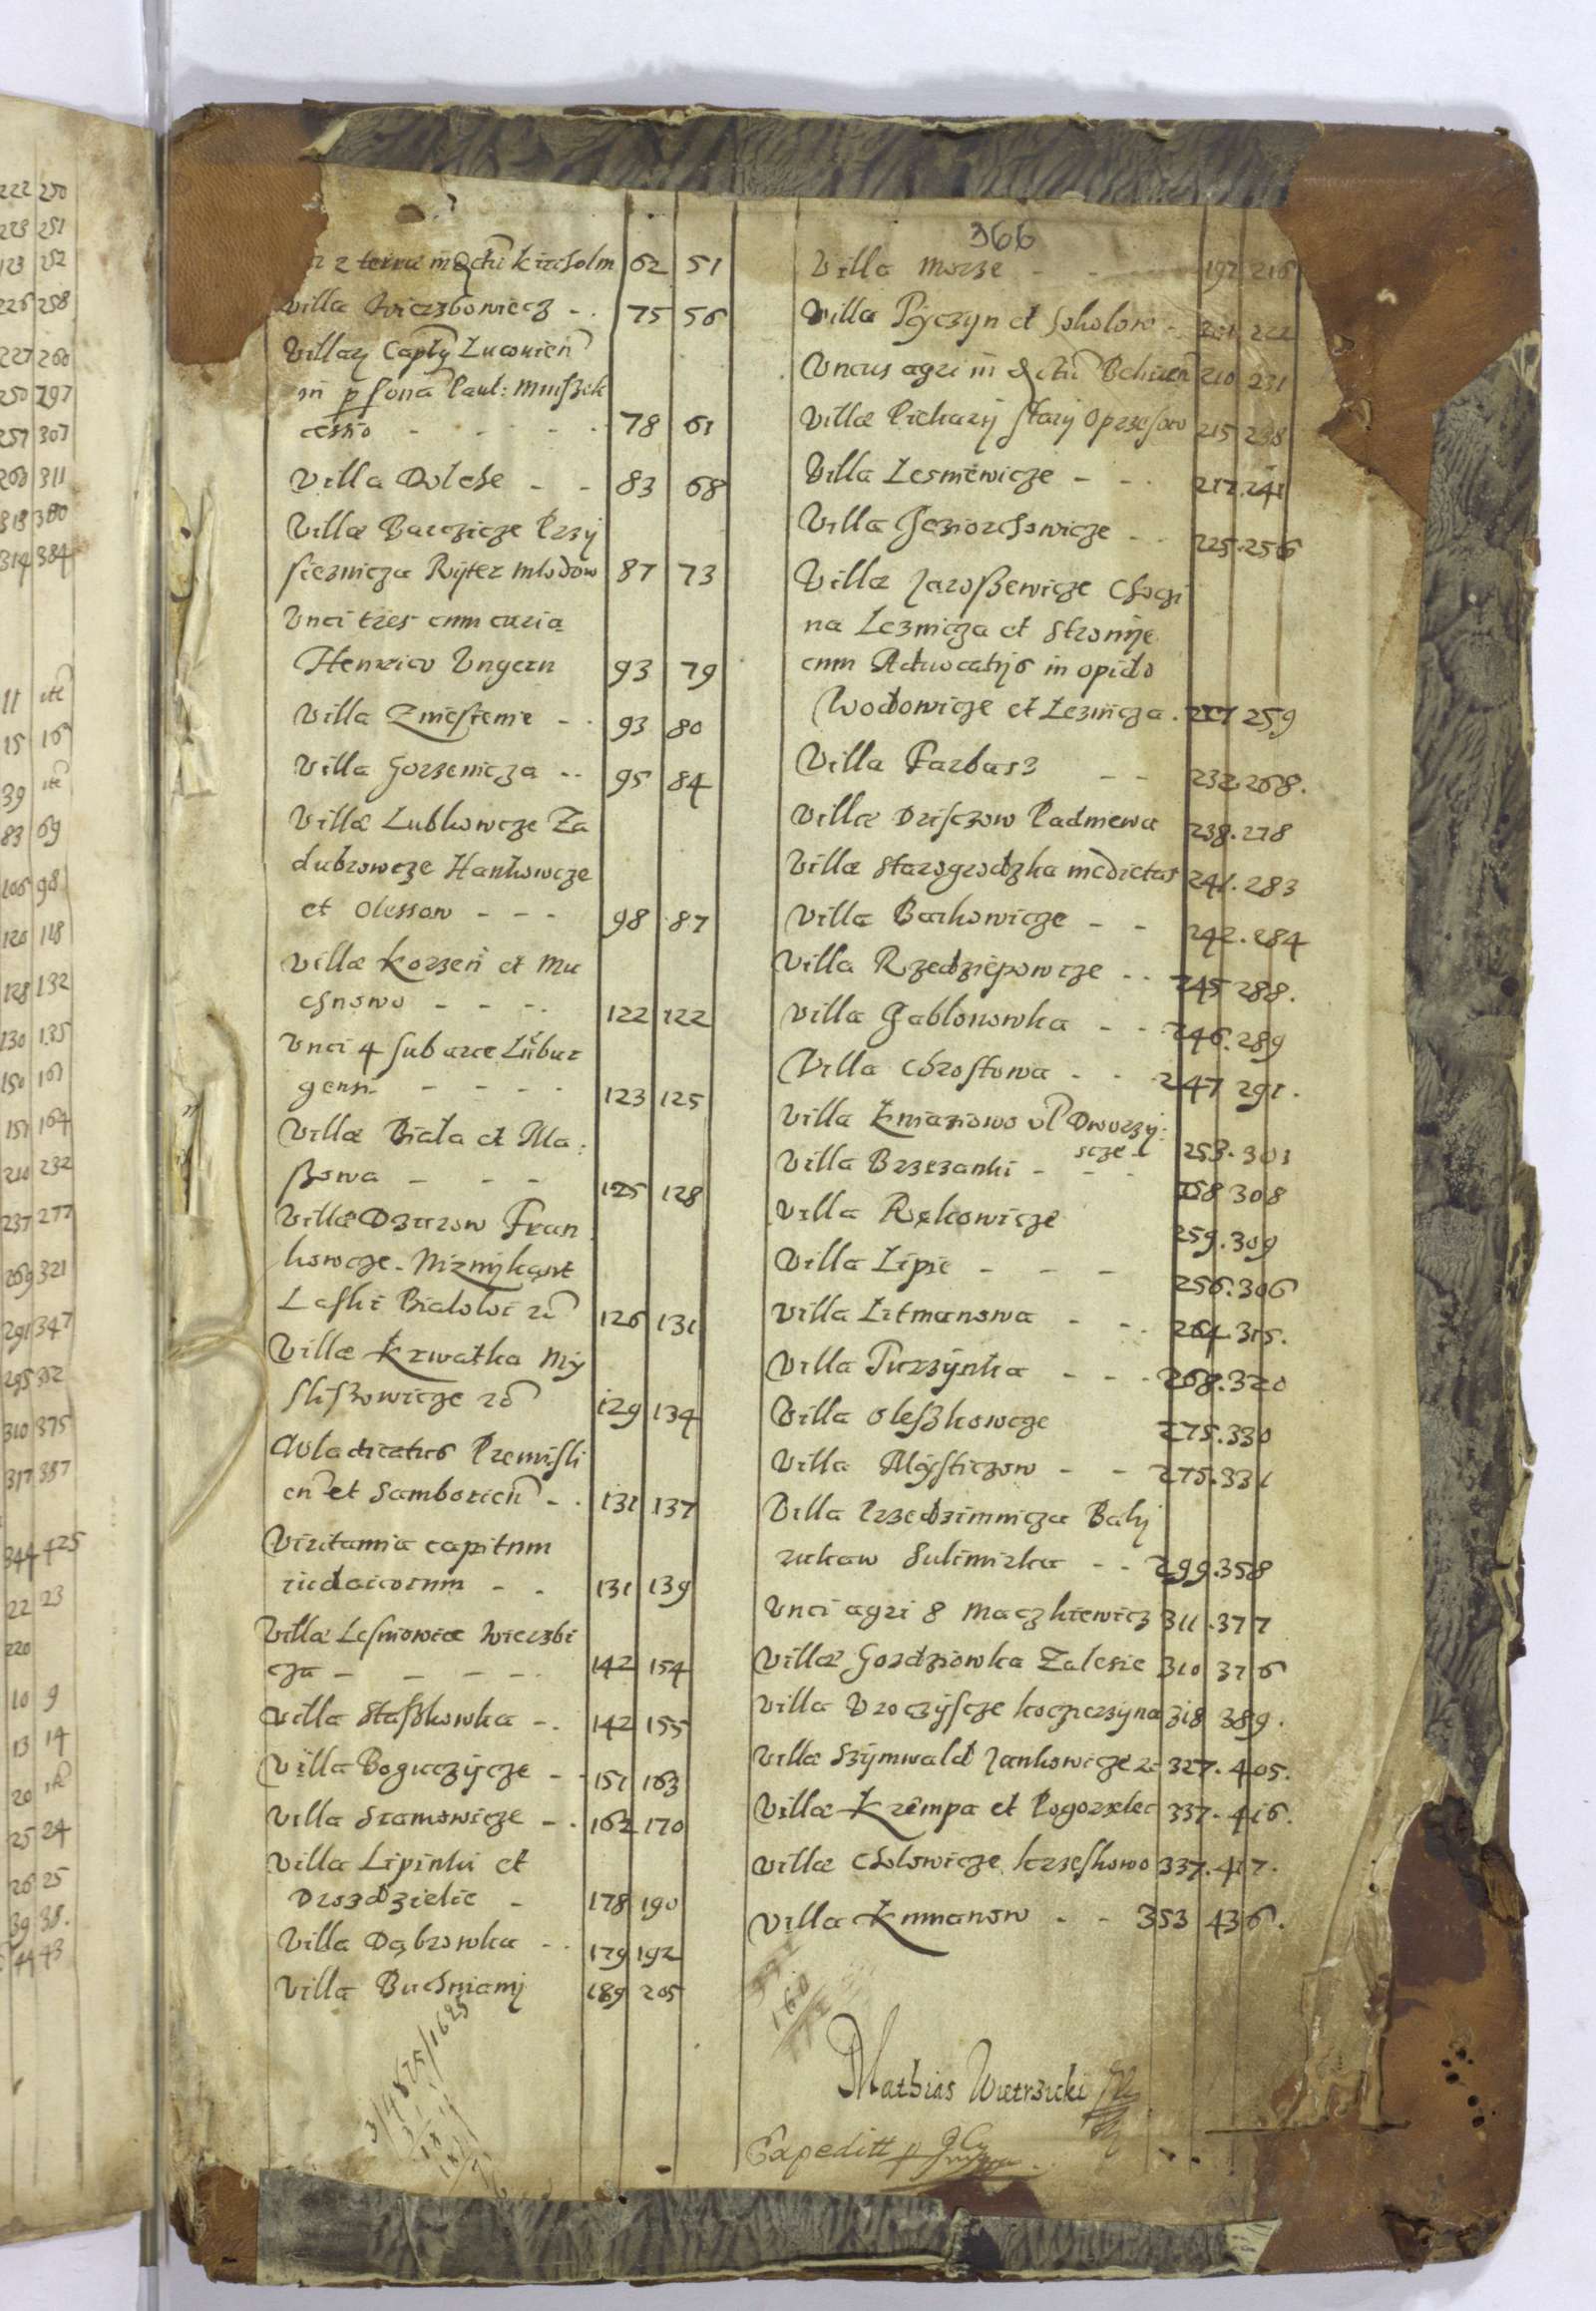 222 250
223 251
123 252
226 258
227 260
250 297
257 307
260 311
313 380
314 384
11 ite
15 16
39 ite
83 69
106 98
120 118
128 132
130 135
150 161
151 164
210 232
237 277
269 321
291 347
295 352
310 375
317 387
344 425
22 23
220
10 9
13 14
20
25 24
26 25
39 38.
44 43
366
2 terrae in kircholm 62 51
Villa Wierzbowiecz - . 75 56
Villary Capty Lucovien
in psona Paul: Mniszek
cessio - - - - - 78 61
Villa Dolche - - 83 68
Villæ Barczicze Przy
siecznicza Ryter mlodow 87 73
Vnci tres cum curia
Henrico Vngern 93 79
Villa Zniesienie - . 93 80
Villa Gorzenicza - . 95 84
Villæ Lubkowcze Za
dubrowcze Hankowcze
et Olessow - - - 98 87
Villæ Korzeń et Mu
chnowo - - - . 122 122
Vnci 4 sub arce Lubur
gensi - - - - 123 125
Villæ Biała et Ma:
ßowa - - - 125 128
Villæ Dzurow Fran
kowcze. Niznykąt
Laski Bialoboi 126 131
Villæ Krwatka My
sliszowicze 129 134
Wladicatus Premisli
en et Samborien - . 131 137
Viritamia capitum
iudaicorum - . 131 139
Villæ Lesniowice Wierzbi
cza - - - - - . 142 154
Villa Staszkowka - . 142 155
Villa Boguczycze - - 151 163
Villa Sramowicze - . 162 170
Villa Lipinki et
Drozdzielic - 178 190
Villa Dąbrowka - . 179 192
Villa Buchniany 189 205
Villa Morze - - 197 216
Villa Pyczyn et Sokolow - 201 222
Vncus agri in 210 231
Villæ Piekary Stary Oprzesow 215 238
Villa Lesniewicze - - . 217 241
Villa Jeziorchowicze - . 225.256
Villæ Jaroßewicze Choci
na Leznicza et Stronye
cum Advocatijs in opido
Wodowicze et Leznicza . 227 259
Villa Parbasz - - 232.268.
Villæ Drisczow Padniewa 238.278
Villæ Starogrodzka medietas 241.283
Villa Barkowicze - - 242.284
Villa Rzedziepowicze - . 245 288.
Villa Jablonowka - - 246.289
Villa Chrostowa - - 247 291.
Villa Kniaziowo vl Dworzy:
scze 253.301
Villa Brzezanki - - - 258 308
Villa Rękowicze 259.309
Villa Lipie - - - 256.306
Villa Litmanowa - - . 264.315.
Villa Turzynka - - - 268.320
Villa Oleszkowcze 275.330
Villa Mysticzow - - 275.331
Villa Przedzimnicza Baly
rukaw Sulimirka - - 299.358
Vnci agri 8 Maczkiewicz 311.377
Villæ Gozdziowka Zalesie 310 376
Villa Vroczyscze koczierzyna 318 389.
Villæ Szymwald Jankowicze 327.405.
Villæ Krempa et Pogorzelec 337.416.
Villæ Cholowicze krzeskowo 337.417.
Villa Kumanow - - 353 436.
Mathias Wietrzicki
Expeditt p